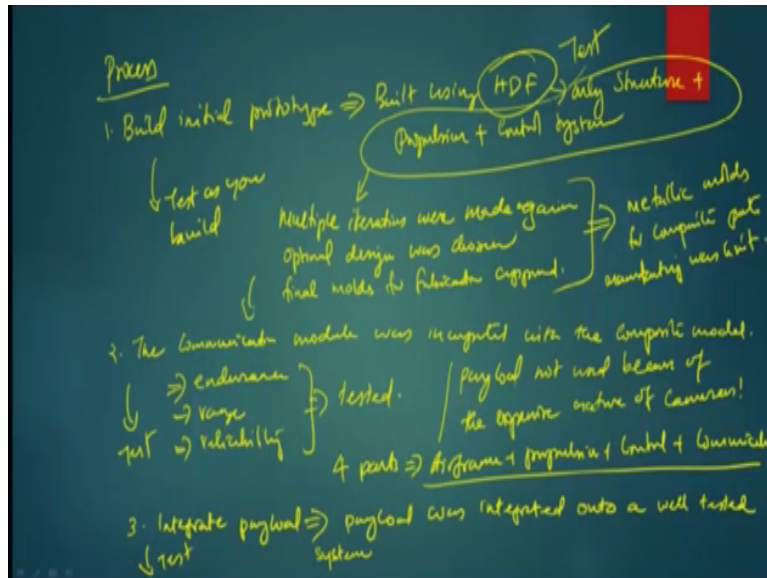 Process
Test
1. Build initial prototype ⇒ Built using HDF → only Structure +
Propulsion + Control System
↓ Test as you
build
Multiple iterations were made again
optimal design was chosen
final molds for fabrication approved.
⇒ metallic molds
for composite parts
manufacturing was built.
2. The Communication module was integrated with the Composite model.
⇒ endurance
→ range
⇒ reliability
⇒ tested.
↓ Test
payload not used because of
the expensive nature of Cameras!
4 parts ⇒ Airframe + propulsion + Control +
3. Integrate payload ⇒ payload was integrated onto a well tested
system
↓ Test